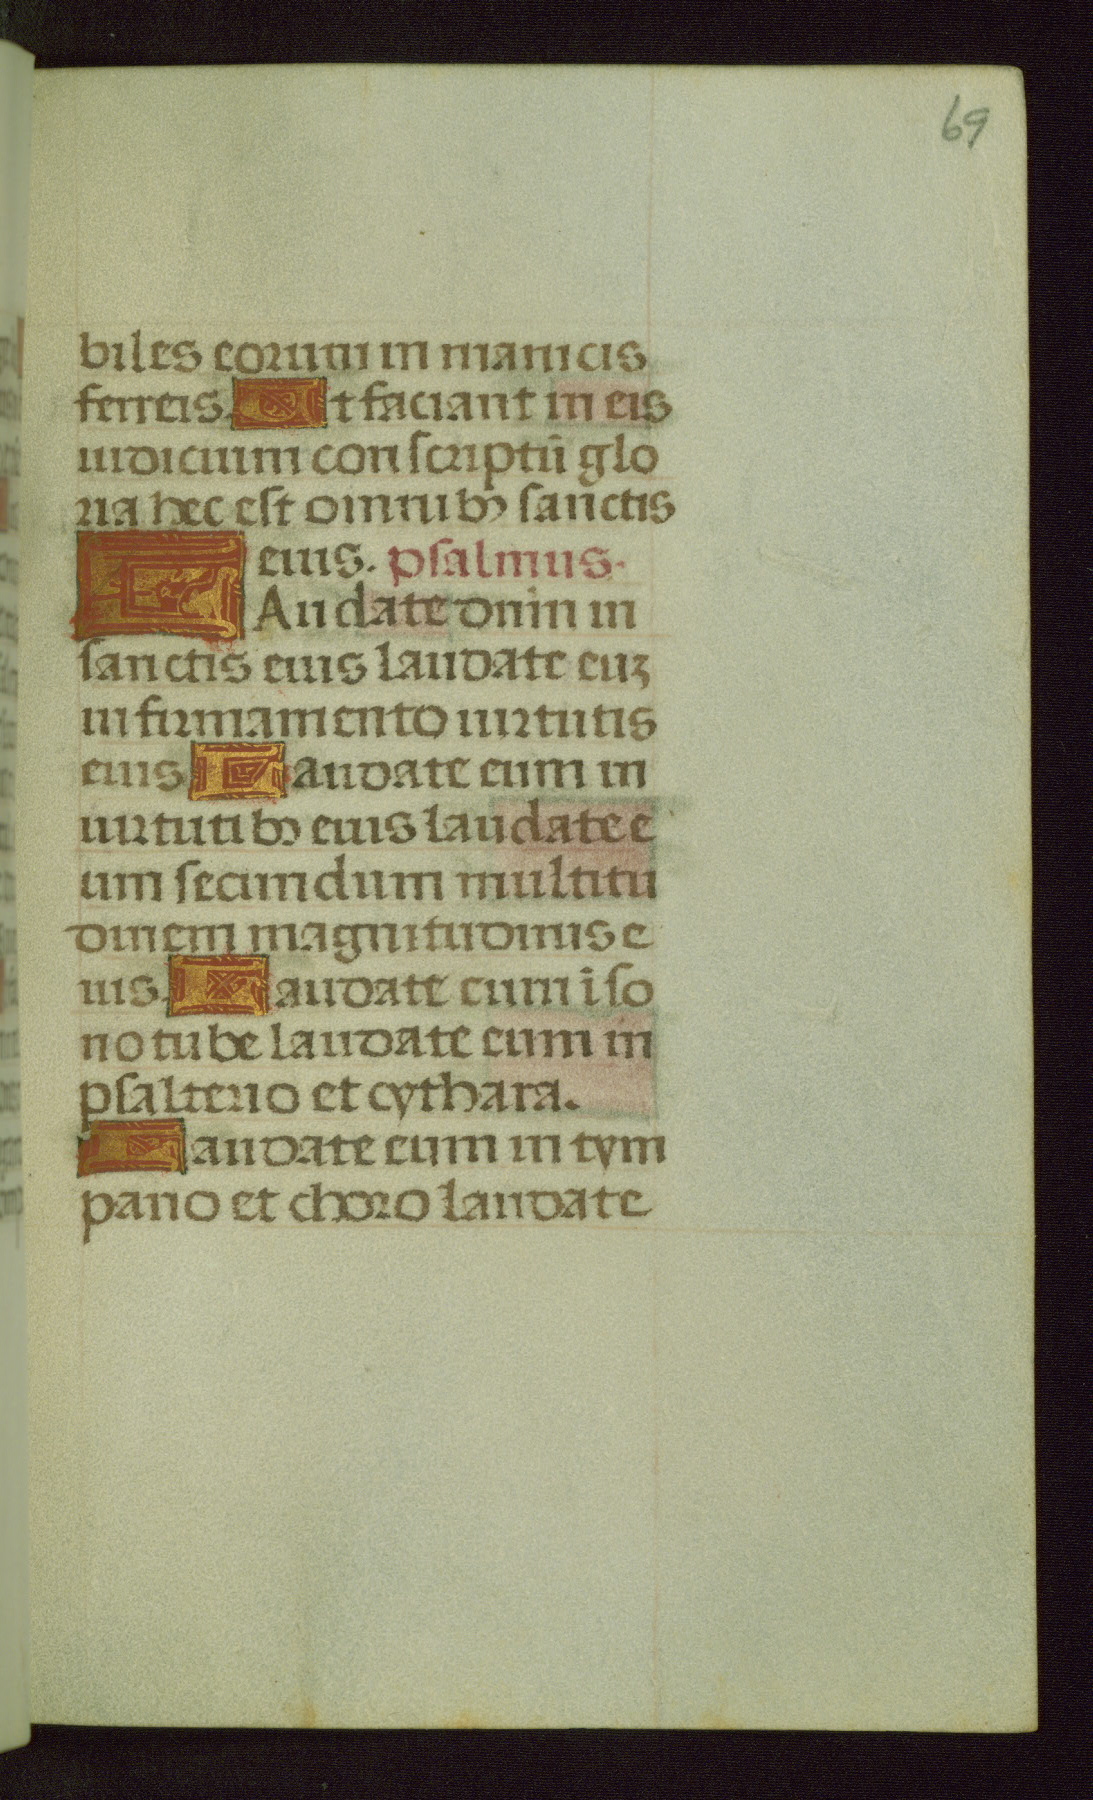 69
biles eorum in manicis
ferreis. Ut faciant in eis
iudicium conscriptū glo
ria hec est omnibꝫ sanctis
eius. psalmus.
LAudate dn̄m in
sanctis eius laudate euꝫ
in firmamento uirtutis
eius Laudate eum in
uirtutibꝫ eius laudate e
um secundum multitu
dinem magnitudinis e
ius. Laudate eum ī so
no tube laudate eum in
psalterio et cythara.
Laudate eum in tym
pano et choro laudate